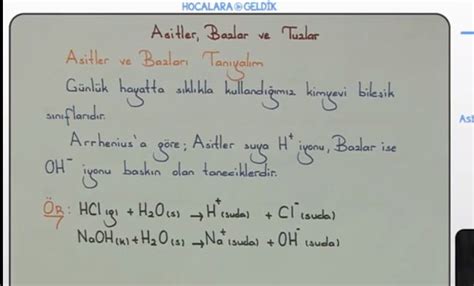 HOCALARA GELDİK
Asitler, Bazlar ve Tuzlar
Asitler ve Bazları Tanıyalım
Günlük hayatta sıklıkla kullandığımız kimyevi bileşik
sınıflarıdır.
Arrhenius'a göre; Asitler suya H⁺ iyonu, Bazlar ise
OH⁻ iyonu baskın olan taneciklerdir.
ÖR: HCl(g) + H2O(s) → H⁺(suda) + Cl⁻(suda)
NaOH(k) + H2O(s) → Na⁺(suda) + OH⁻(suda)
Ast